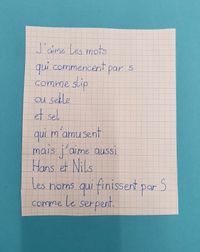 J'aime les mots
qui commencent par s
comme slip
ou selle
et sel
qui m'amusent
mais j'aime aussi
Hans et Nils
les noms qui finissent par S
comme le serpent.